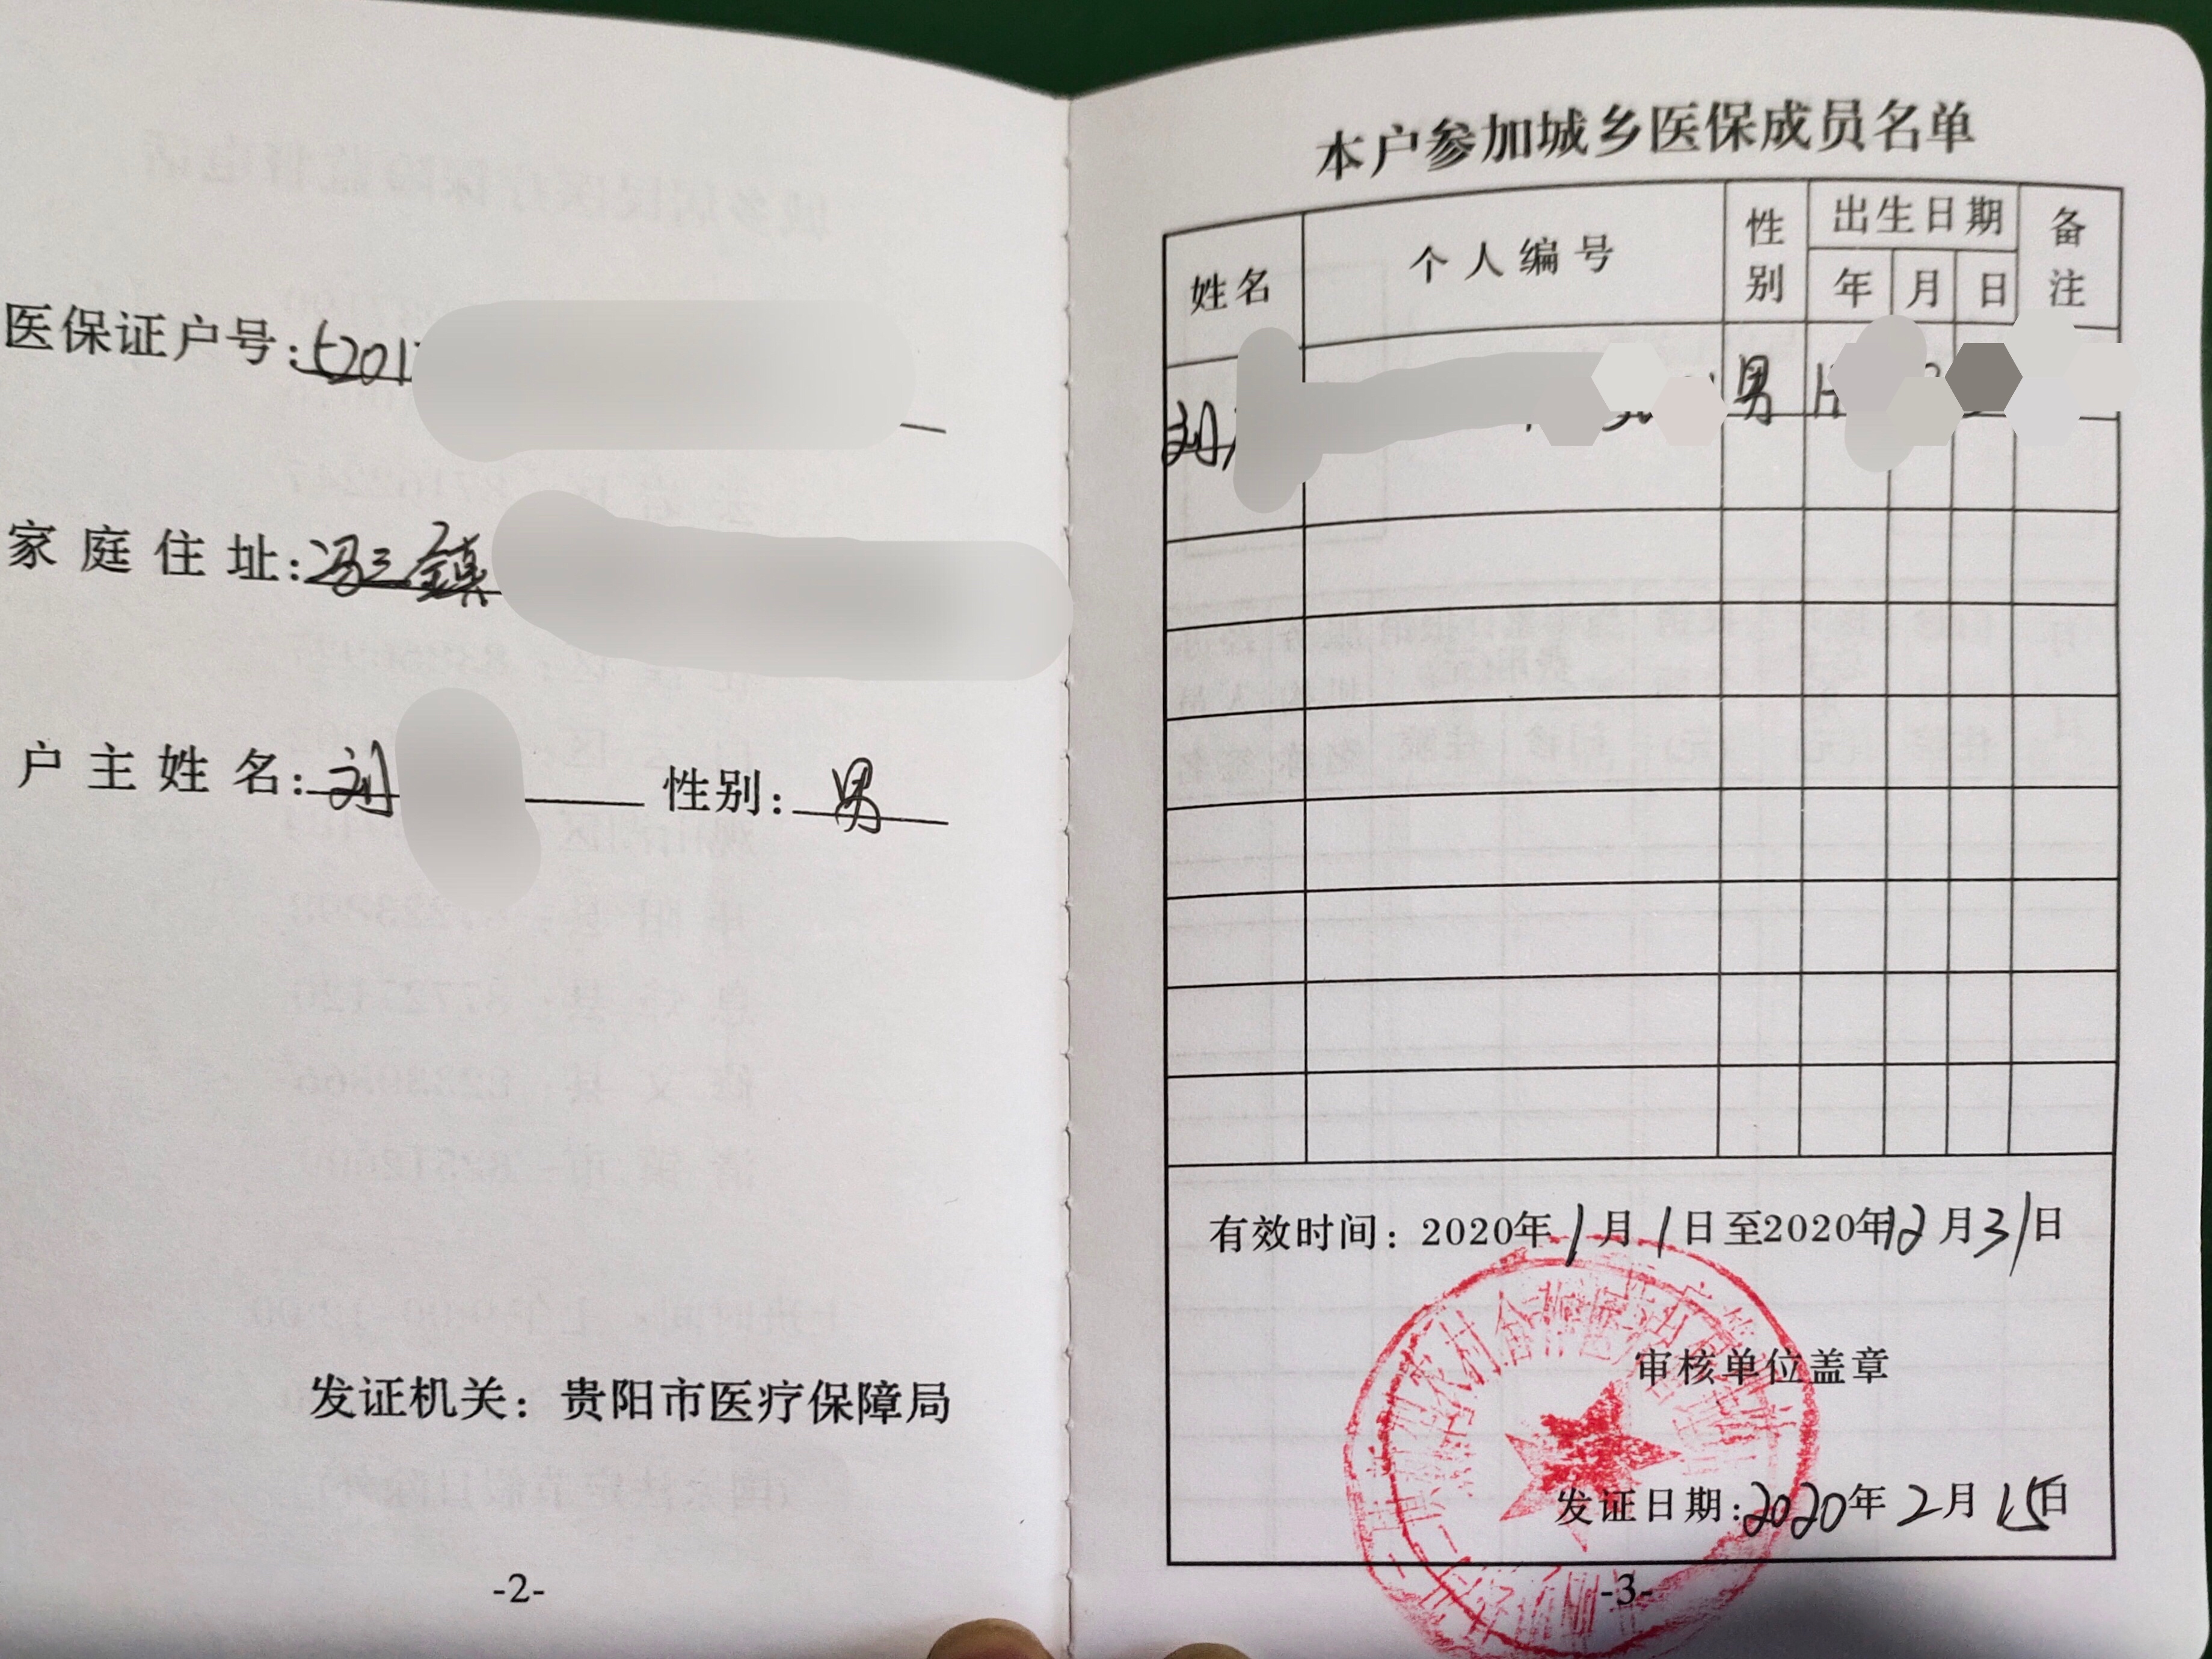 医保证户号:5201
家庭住址:冯三鎮
户主姓名:刘 性别:男
发证机关：贵阳市医疗保障局
-2-
本户参加城乡医保成员名单
姓名 个人编号 性别 出生日期 备注
年 月 日
刘 男
有效时间：2020年1月1日至2020年12月31日
审核单位盖章
发证日期:2020年2月15日
-3-